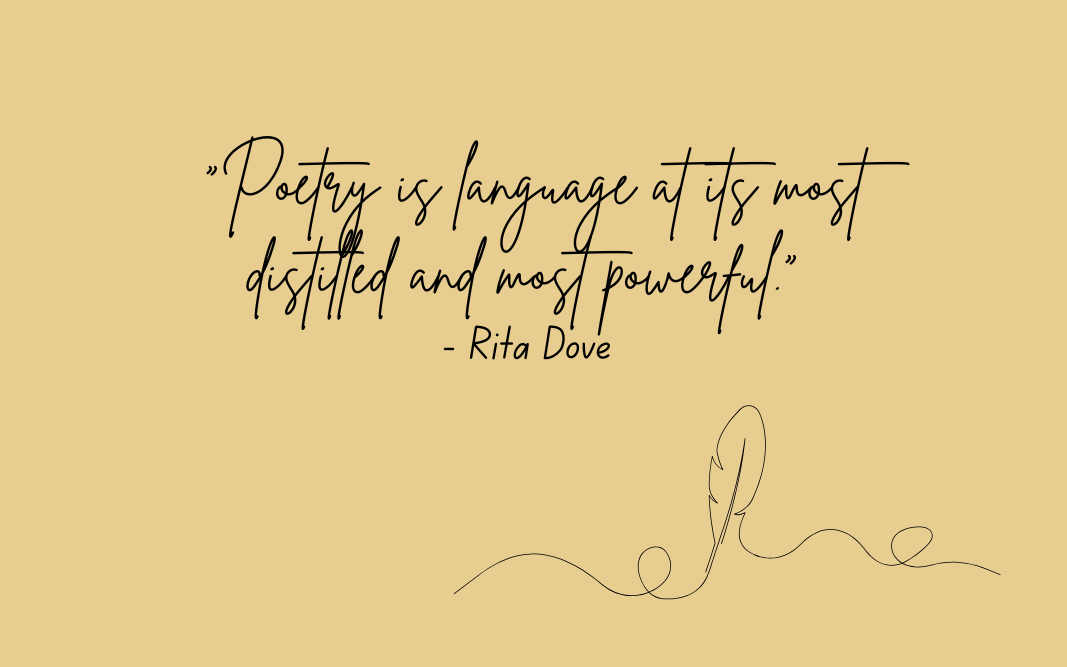 ”Poetry is language at its most
distilled and most powerful.”
- Rita Dove